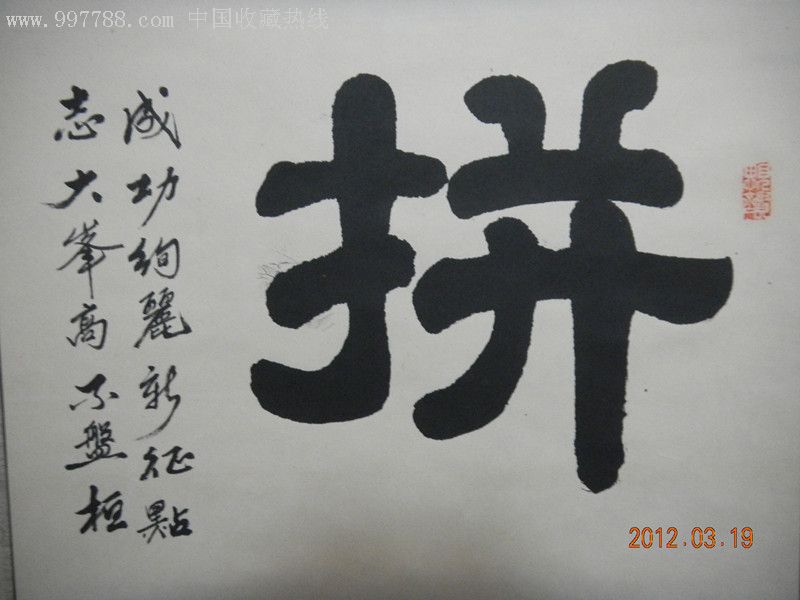 www.997788.com 中国收藏热线
拼
成功絢麗新征點
志大峯高不盤桓
2012.03.19